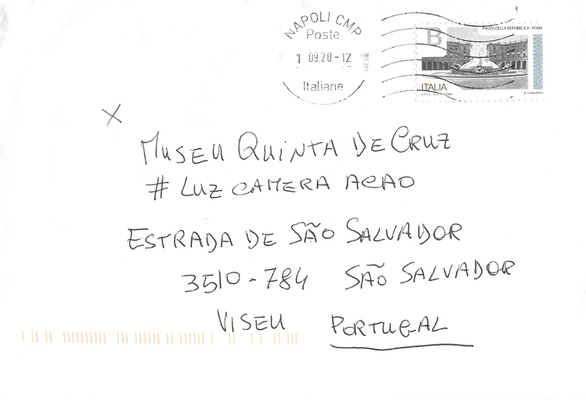 NAPOLI CMP
Poste
1 09.20-12
Italiane
PIAZZA DELLA REPUBBLICA - ROMA
B
ITALIA
X
MUSEU QUINTA DE CRUZ
# LUZ CAMERA ACAO
ESTRADA DE SÃO SALVADOR
3510-784 SÃO SALVADOR
VISEU PORTUGAL